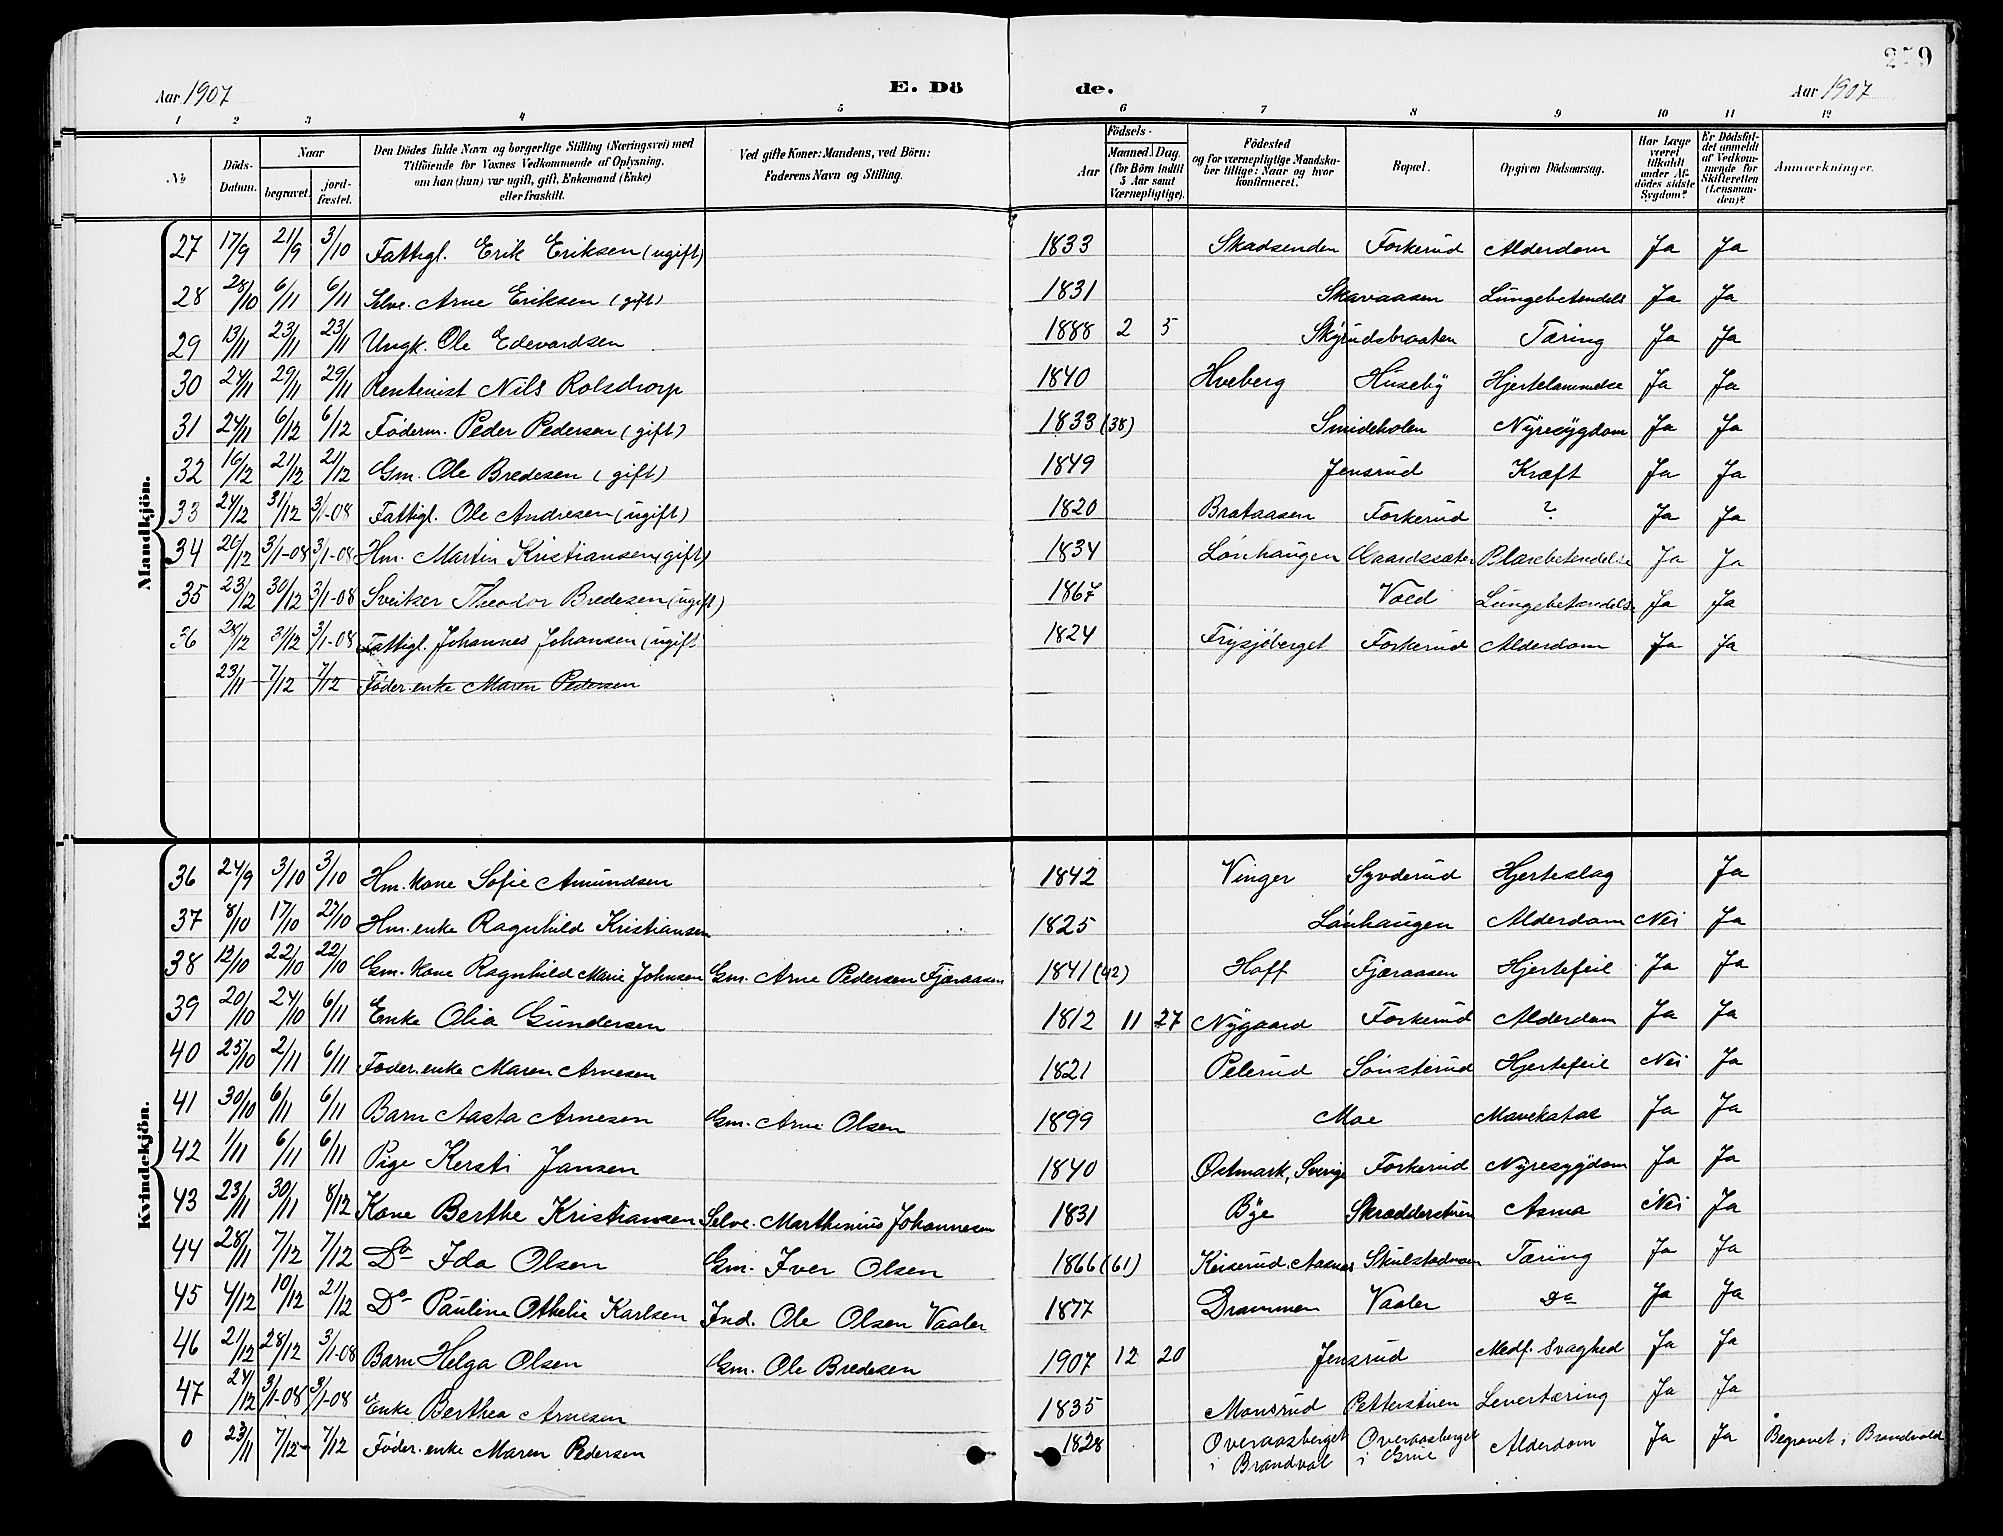 259
Aar 1907 E. Döde. Aar 1907
1 2 3 4 5 6 7 8 9 10 11 12
№ Döds-Datum. Naar begravet. jordfæstet. Den Dödes fulde Navn og borgerlige Stilling (Næringsvei) med Tilföiende for Voxnes Vedkommende af Oplysning, om han (hun) var ugift, gift, Enkemand (Enke) eller fraskilt. Ved gifte Koner: Mandens, ved Börn: Faderens Navn og Stilling. Födsels- Aar Maaned. Dag. (for Börn indtil 5 Aar samt Værnepligtige). Födested og for værnepligtige Mandskaber tillige: Naar og hvor konfirmeret. Bopæl. Opgiven Dödsaarsag. Har Læge været tilkaldt under Afdödes sidste Sygdom? Er Dödsfaldet anmeldt af Vedkommende for Skifteretten (Lensmanden)? Anmærkninger.
Mandkjön.
27 17/9 21/9 3/10 Fattigl. Erik Eriksen (ugift) 1833 Skadsenden Forkerud Alderdom Ja Ja
28 28/10 6/11 6/11 Selve. Arne Eriksen (gift) 1831 Skavaasen Lungebetendels Ja Ja
29 13/11 23/11 23/11 Ungk. Ole Edevardsen 1888 2 5 Skyrudsbraaten Tæring Ja Ja
30 24/11 29/11 29/11 Rentenist Nils Rolsdorp 1840 Hveberg Huseby Hjertelammelse Ja Ja
31 24/11 6/12 6/12 Föderm. Peder Pedersen (gift) 1833 (38) Smideholen Nyresygdom Ja Ja
32 16/12 21/12 21/12 Gm. Ole Bredesen (gift) 1849 Jensrud Kræft Ja Ja
33 24/12 31/12 3/1-08 Fattigl. Ole Andresen (ugift) 1820 Brataasen Forkerud ? Ja Ja
34 26/12 3/1-08 3/1-08 Hm. Martin Kristiansen (gift) 1834 Lönhaugen Gaardssæter Blærebetendelse Ja Ja
35 23/12 30/12 3/1-08 Sveitser Theodor Bredesen (ugift) 1867 Vold Lungebetændels Ja Ja
36 28/12 31/12 3/1-08 Fattigl. Johannes Johansen (ugift 1824 Frysjöberget Forkerud Alderdom Ja Ja
23/11 7/12 7/12 Föder.enke Maren Pedersen
Kvindekjön.
36 24/9 3/10 3/10 Hm. kone Sofie Amundsen 1842 Vinger Syvderud Hjerteslag Ja
37 8/10 17/10 23/10 Hm. enke Ragnhild Kristiansen 1825 Lönhaugen Alderdom Nei Ja
38 12/10 22/10 22/10 Gm. kone Ragnhild Marie Johnsen Gm. Arne Pedersen Fjæraasen 1841 (42) Hoff Fjæraasen Hjertefeil Ja Ja
39 20/10 24/10 6/11 Enke Olia Gundersen 1812 11 27 Nygaard Forkerud Alderdom Ja Ja
40 25/10 2/11 6/11 Föder.enke Maren Arnesen 1821 Pelerud Sönsterud Hjertefeil Nei Ja
41 30/10 6/11 6/11 Barn Aasta Arnesen Gm. Arne Olsen 1899 Moe Mavekatar Ja Ja
42 1/11 6/11 6/11 Pige Kersti Jansen 1840 Østmark, Sverige Forkerud Nyresygdom Ja Ja
43 23/11 30/11 8/12 Kone Berthe Kristiansen Selve. Marthinius Johannesen 1831 Bye Skrædderstuen Asma Nei Ja
44 28/11 7/12 7/12 Do Ida Olsen Gm. Iver Olsen 1866 (61) Keiserud, Aasnes Skulstadmoen Tæring Ja Ja
45 4/12 10/12 21/12 Do Pauline Othelie Karlsen Ind. Ole Olsen Vaaler 1877 Drammen Vaaler Do Ja Ja
46 21/12 28/12 3/1-08 Barn Helga Olsen Gm. Ole Bredesen 1907 12 20 Jensrud Medf. Svaghed Ja Ja
47 24/12 3/1-08 3/1-08 Enke Berthea Arnesen 1835 Monsrud Petterstuen Levertæring Ja Ja
0 23/11 7/12 7/12 Föder.enke Maren Pedersen 1828 Overaasberget i Brandval Overaasberget i Grue Alderdom Ja Ja Begravet i Brandvold